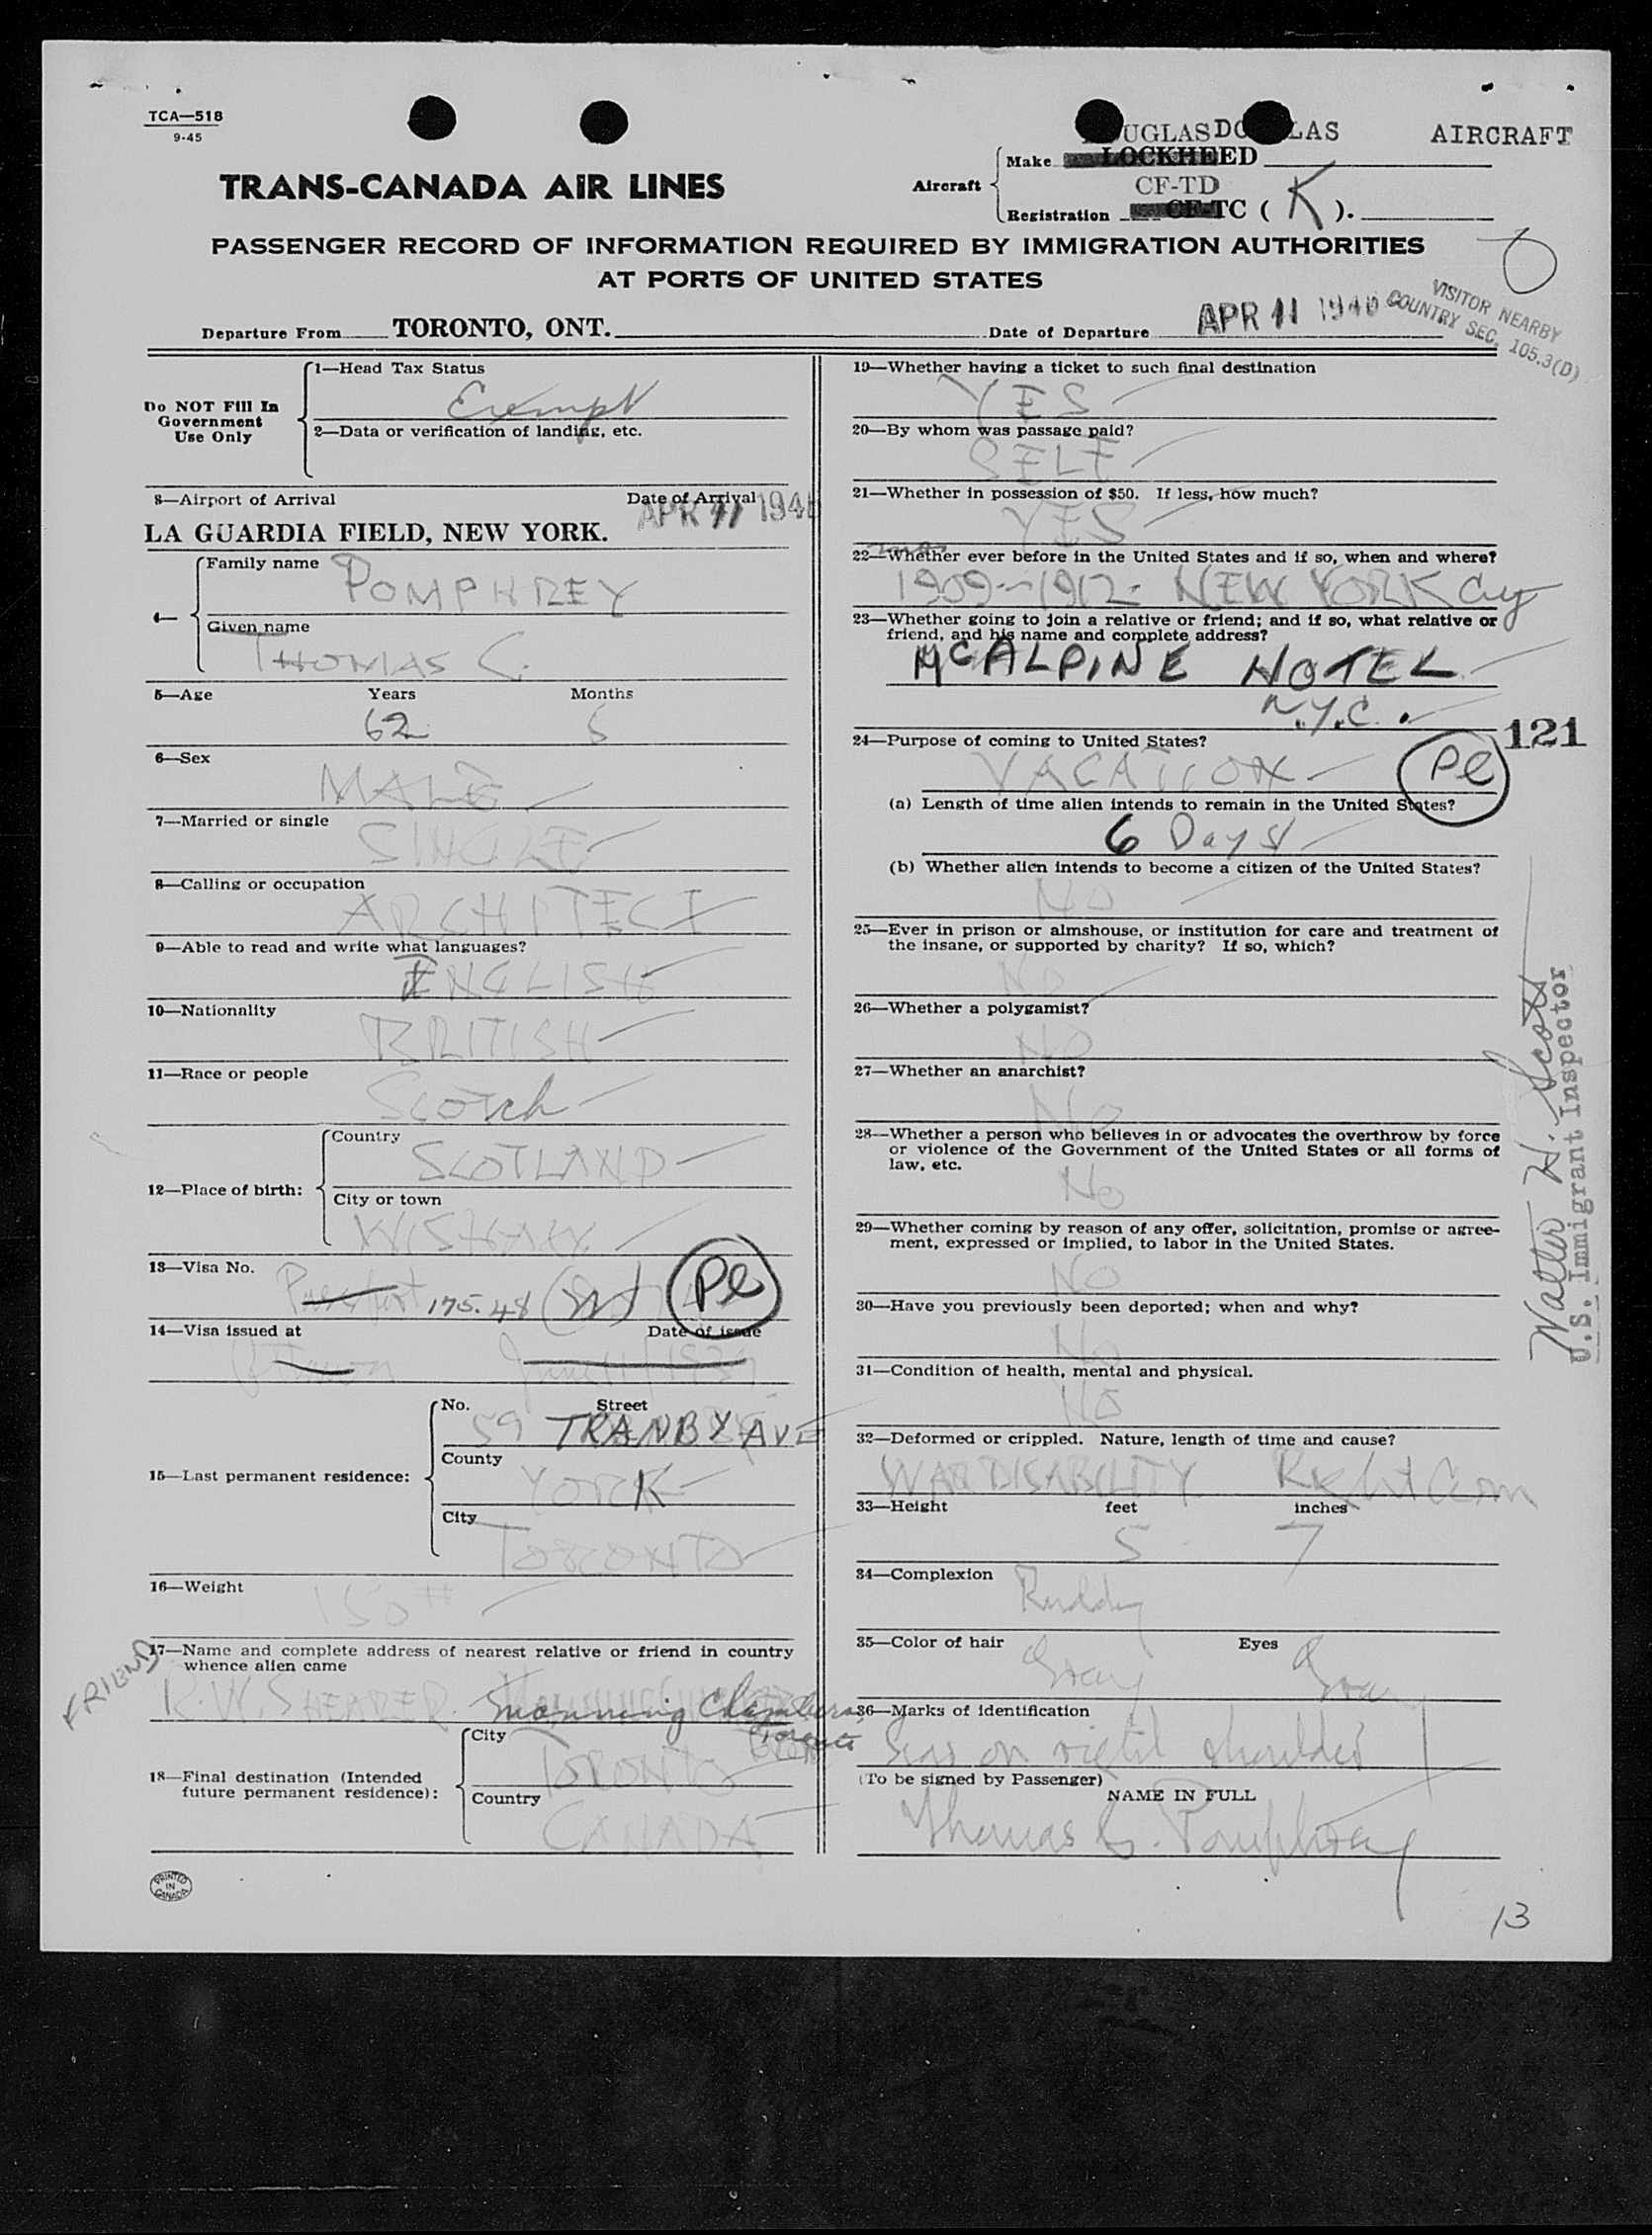 TCA—518
9-45
UGLAS DO LAS AIRCRAFT
TRANS-CANADA AIR LINES
Aircraft
Make LOCKHEED
CF-TD
Registration CF-TC ( K ).
PASSENGER RECORD OF INFORMATION REQUIRED BY IMMIGRATION AUTHORITIES
AT PORTS OF UNITED STATES
VISITOR NEARBY
COUNTRY SEC. 105.3(D)
Departure From TORONTO, ONT. Date of Departure APR 11 1946
Do NOT Fill In
Government
Use Only
1—Head Tax Status
Exempt
2—Data or verification of landing, etc.
3—Airport of Arrival Date of Arrival
LA GUARDIA FIELD, NEW YORK. APR 11 1946
4—
Family name
POMPHREY
Given name
THOMAS C.
5—Age Years Months
62 5
6—Sex
MALE
7—Married or single
SINGLE
8—Calling or occupation
ARCHITECT
9—Able to read and write what languages?
ENGLISH
10—Nationality
BRITISH
11—Race or people
Scotch
12—Place of birth:
Country
SCOTLAND
City or town
WISHAW
13—Visa No.
Passport 175.48 Pl
14—Visa issued at Date of issue
Ottawa
15—Last permanent residence:
No. Street
59 TRANBY AVE
County
YORK
City
TORONTO
16—Weight
150 #
17—Name and complete address of nearest relative or friend in country
whence alien came
FRIEND
R.W. SHEARER. Manning Chambers
Toronto
18—Final destination (Intended
future permanent residence):
City
TORONTO
Country
CANADA
PRINTED
IN
CANADA
19—Whether having a ticket to such final destination
YES
20—By whom was passage paid?
SELF
21—Whether in possession of $50. If less, how much?
YES
22—Whether ever before in the United States and if so, when and where?
1909-1912- NEW YORK City
23—Whether going to join a relative or friend; and if so, what relative or
friend, and his name and complete address?
McALPINE HOTEL
N.Y.C.
121
24—Purpose of coming to United States?
VACATION Pl
(a) Length of time alien intends to remain in the United States?
6 Days
(b) Whether alien intends to become a citizen of the United States?
No
25—Ever in prison or almshouse, or institution for care and treatment of
the insane, or supported by charity? If so, which?
No
26—Whether a polygamist?
NO
27—Whether an anarchist?
No
28—Whether a person who believes in or advocates the overthrow by force
or violence of the Government of the United States or all forms of
law, etc.
No
29—Whether coming by reason of any offer, solicitation, promise or agree-
ment, expressed or implied, to labor in the United States.
NO
30—Have you previously been deported; when and why?
No
31—Condition of health, mental and physical.
NO
32—Deformed or crippled. Nature, length of time and cause?
WAR DISABILITY Right Arm
33—Height feet inches
5 7
34—Complexion
Ruddy
35—Color of hair Eyes
Gray Gray
36—Marks of identification
Scar on right shoulder
(To be signed by Passenger)
NAME IN FULL
Thomas C. Pomphrey
Walter H. Scott
U.S. Immigrant Inspector
13